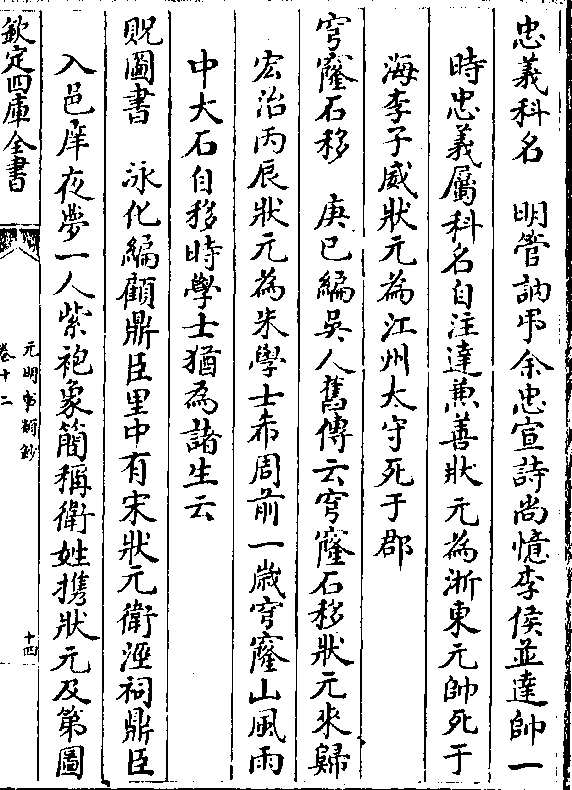 忠義科名　明管訥弔余忠宣詩尚憶李侯並達帥一
時忠義屬科名自注達兼善狀元為浙東元帥死于
海李子威狀元為江州太守死于郡
穹窿石移　庚巳編吳人舊傳云穹窿石移狀元来歸
宏治丙辰狀元為朱學士希周前一歲穹窿山風雨
中大石自移時學士猶為諸生云
貺圖書　泳化編顧鼎臣里中有宋狀元衛涇祠鼎臣
入邑庠夜夢一人紫袍象簡稱衛姓携狀元及第圖
欽定四庫全書
元明事類鈔
卷十二
十四